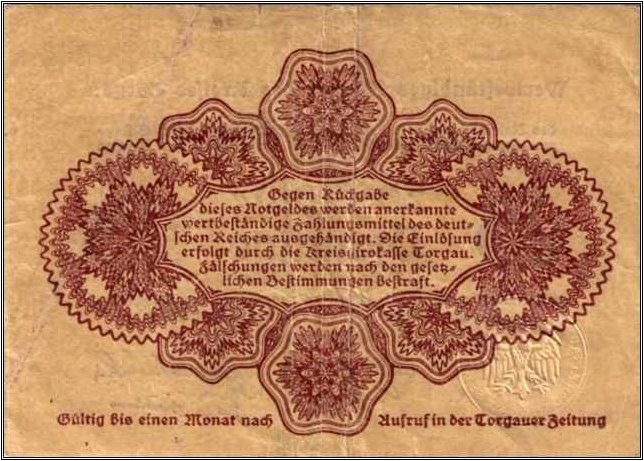 Gegen Rückgabe
dieses Notgeldes werden anerkannte
wertbeständige Zahlungsmittel des deut-
schen Reiches ausgehändigt. Die Einlösung
erfolgt durch die Kreisgirokasse Torgau.
Fälschungen werden nach den gesetz-
lichen Bestimmungen bestraft.
Gültig bis einen Monat nach Aufruf in der Torgauer Zeitung